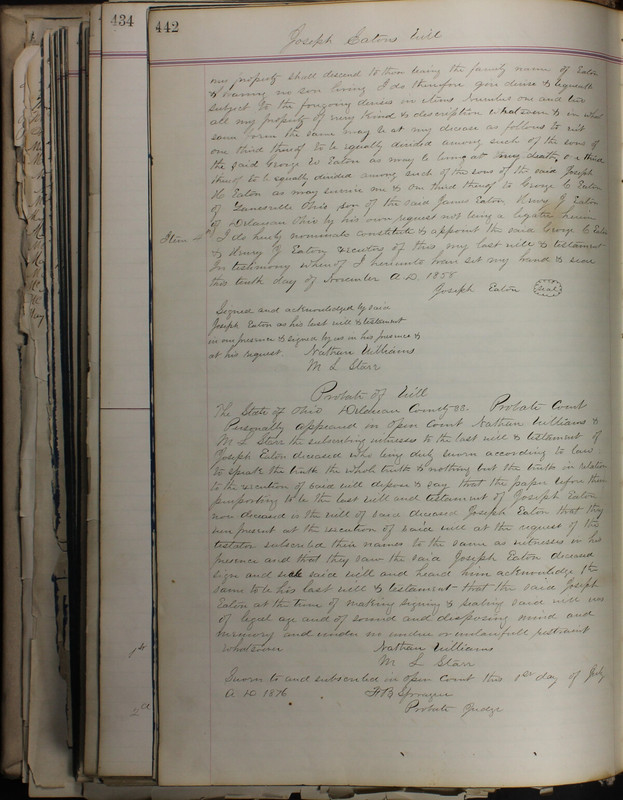 434
442
Joseph Eatons Will
my property shall descend to them being the family name of Eaton
& having no son living I do therefore give devise & bequeath
subject to the foregoing devises in items number one and two
all my property of every kind & description whatsoever & in what
soever form the same may be at my decease as follows to wit
one third thereof to be equally divided among such of the sons of
the said George W Eaton as may be living at my death, one third
thereof to be equally divided among such of the sons of the said Joseph
H Eaton as may survive me & one third thereof to George C Eaton
of Zanesville Ohio son of the said James Eaton Henry J Eaton
of Delaware Ohio by his own request not being a legatee herein
Item 4th I do hereby nominate constitute & appoint the said George C Eaton
& Henry J Eaton executors of this my last will & testament
In testimony whereof I hereunto have set my hand & seal
this tenth day of November A.D. 1858
Joseph Eaton Seal
Signed and acknowledged by said
Joseph Eaton as his last will & testament
in our presence & signed by us in his presence &
at his request. Nathan Williams
M L Starr
Probate of Will
The State of Ohio Delaware County ss. Probate Court
Personally appeared in open Court Nathan Williams &
M L Starr the subscribing witnesses to the last will & testament of
Joseph Eaton deceased who being duly sworn according to law
to speak the truth the whole truth & nothing but the truth in relation
to the execution of said will depose & say that the paper before them
purporting to be the last will and testament of Joseph Eaton
now deceased is the will of said deceased Joseph Eaton that they
were present at the execution of said will at the request of the
testator subscribed their names to the same as witnesses in his
presence and that they saw the said Joseph Eaton deceased
sign and seal said will and heard him acknowledge the
same to be his last will & testament - that the said Joseph
Eaton at the time of making signing & sealing said will was
of legal age and of sound and disposing mind and
memory and under no undue or unlawfull restraint
whatsoever Nathan Williams
M L Starr
Sworn to and subscribed in open Court this 1st day of July
A D 1876 F B Sprague
Probate Judge